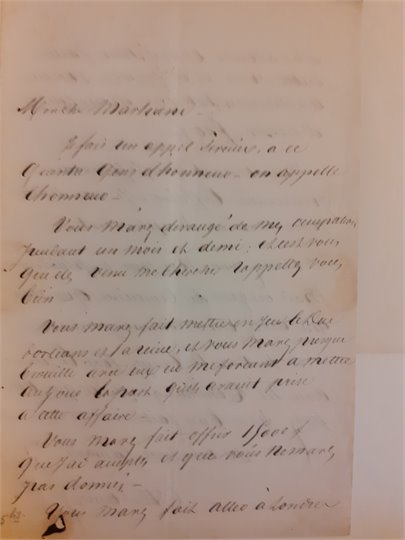 Mon ch Martiani -
Je fais un appel sérieux, a ce
gens d'honneur - on appelle
l'honneur -
Vous m'avez dérangé de mes occupations
pendant un mois et demi; et c'est vous
qui êtes venu me chercher rappellez vous
bien
Vous m'avez fait mettre en jeu le Duc
d'orleans et la reine, et vous m'avez presque
brouillé avec eux en me forcant a mettre
au jour la part qu'ils avaient prise
a cette affaire -
Vous m'avez fait offrir 15000 f
que j'ai acceptés et que vous ne m'avez
pas donnés -
Vous m'avez fait aller à Londres